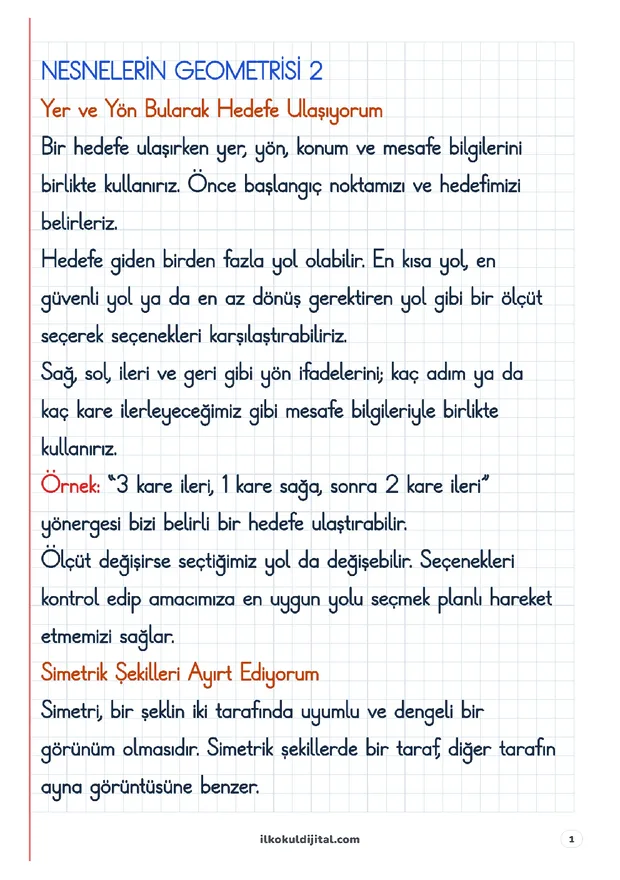 NESNELERİN GEOMETRİSİ 2
Yer ve Yön Bularak Hedefe Ulaşıyorum
Bir hedefe ulaşırken yer, yön, konum ve mesafe bilgilerini
birlikte kullanırız. Önce başlangıç noktamızı ve hedefimizi
belirleriz.
Hedefe giden birden fazla yol olabilir. En kısa yol, en
güvenli yol ya da en az dönüş gerektiren yol gibi bir ölçüt
seçerek seçenekleri karşılaştırabiliriz.
Sağ, sol, ileri ve geri gibi yön ifadelerini; kaç adım ya da
kaç kare ilerleyeceğimiz gibi mesafe bilgileriyle birlikte
kullanırız.
Örnek: “3 kare ileri, 1 kare sağa, sonra 2 kare ileri”
yönergesi bizi belirli bir hedefe ulaştırabilir.
Ölçüt değişirse seçtiğimiz yol da değişebilir. Seçenekleri
kontrol edip amacımıza en uygun yolu seçmek planlı hareket
etmemizi sağlar.
Simetrik Şekilleri Ayırt Ediyorum
Simetri, bir şeklin iki tarafında uyumlu ve dengeli bir
görünüm olmasıdır. Simetrik şekillerde bir taraf, diğer tarafın
ayna görüntüsüne benzer.
ilkokuldijital.com
1